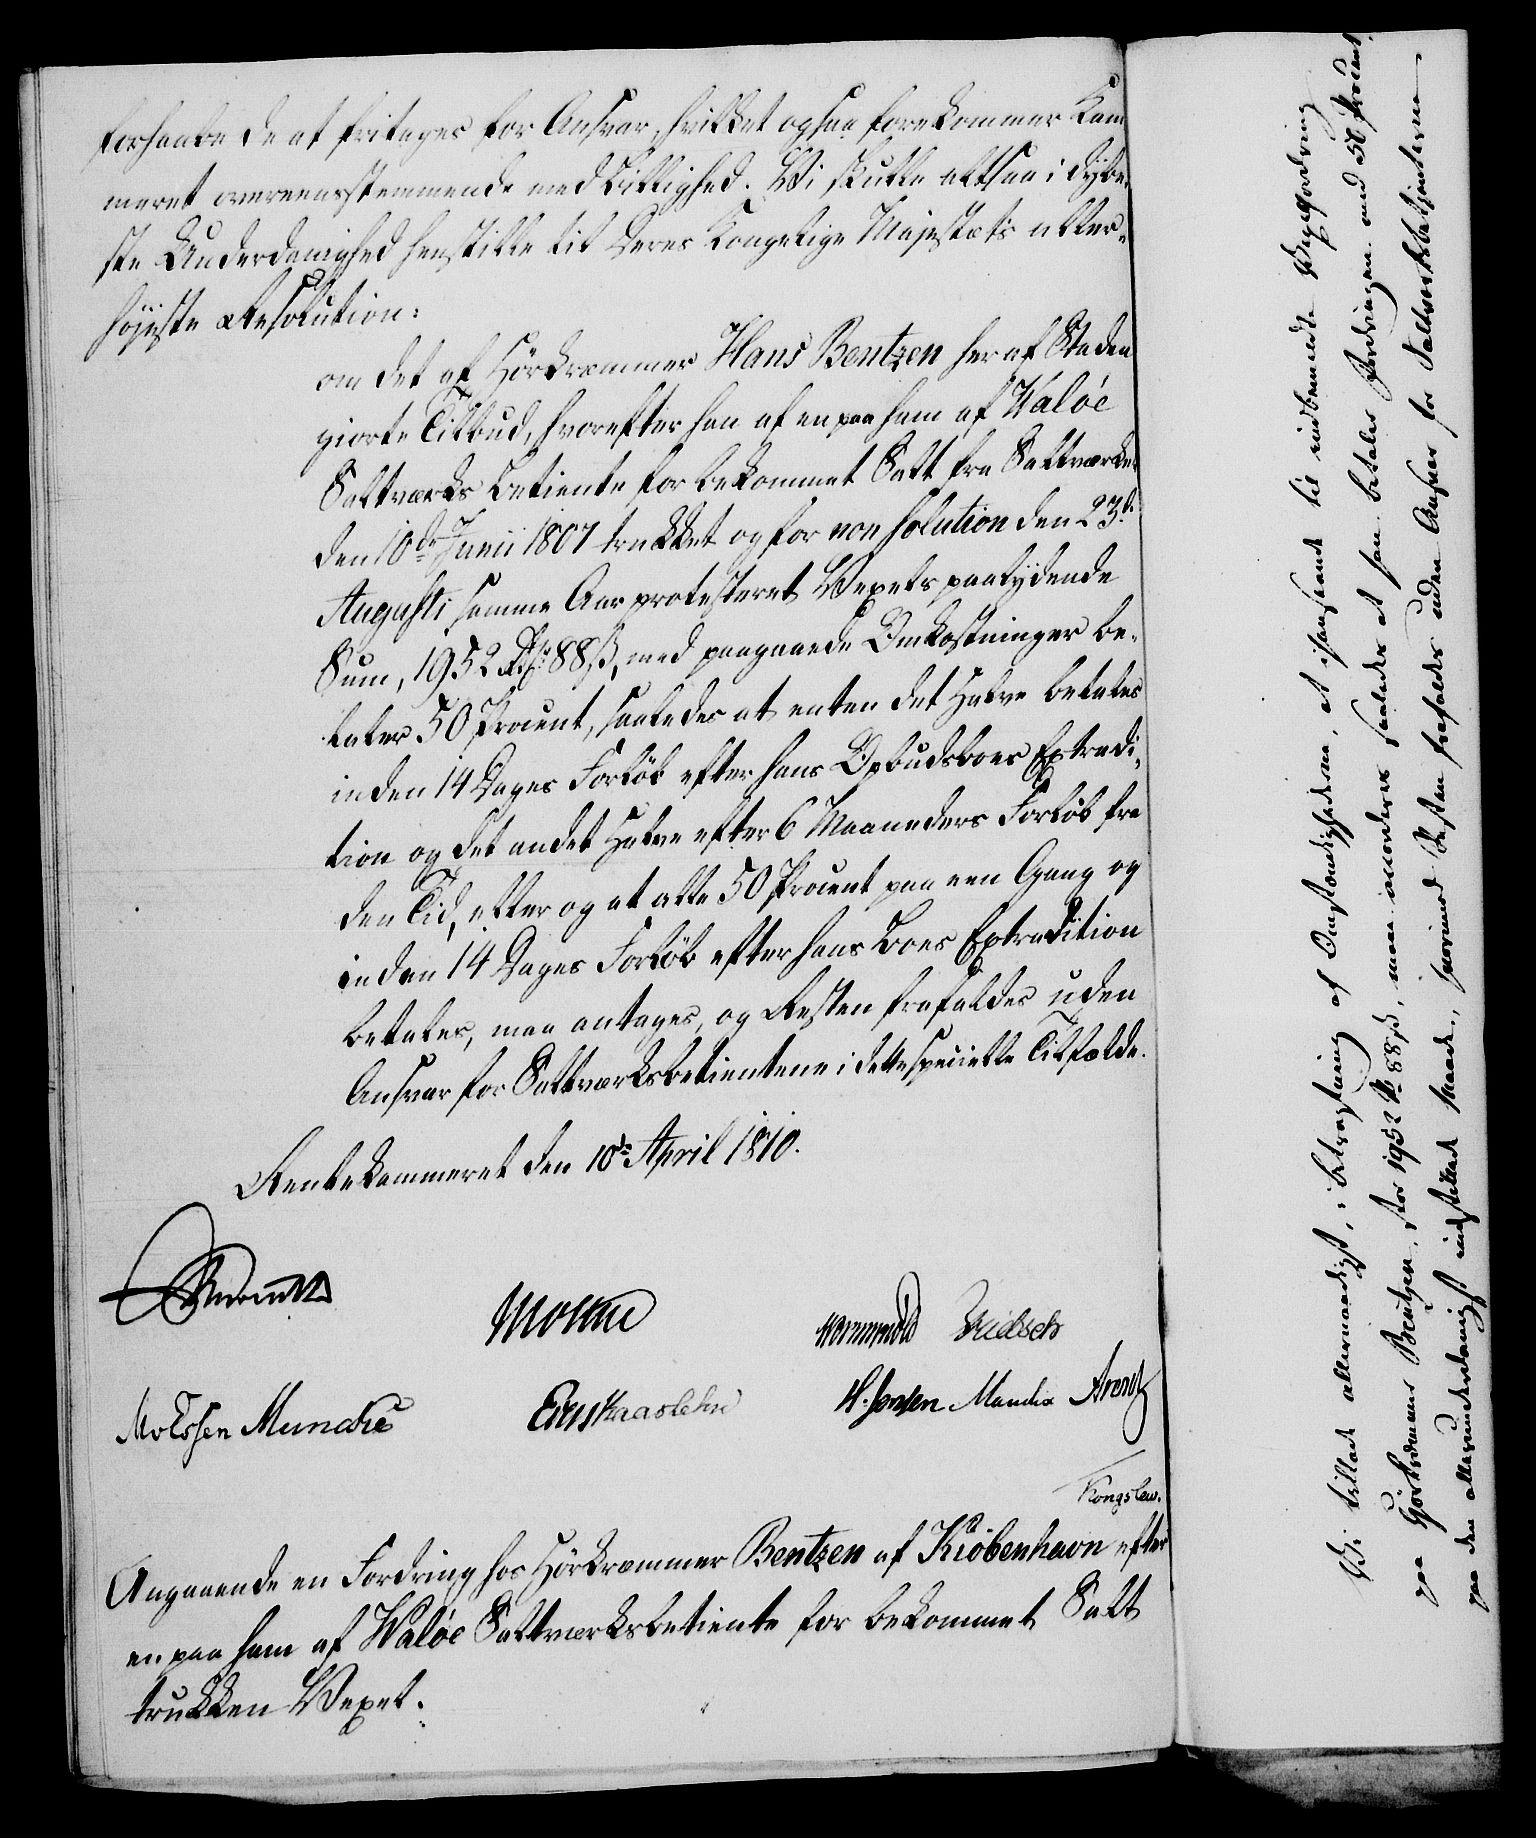 forhaabe de at fritages for Ansvar, hvilket ogsaa forekommer Kam
meret overeensstemmende med Billighed. Vi skulle altsaa i dybe-
ste Underdanighed henstille til Deres Kongelige Majestæts aller-
höjeste Resolution:
om det af Hörkræmmer Hans Bentzen her af Staden
giorte Tilbud, hvorefter han af en paa ham af Waløe
Saltværks Betiente for bekommet Salt fra Saltværket
den 10de Junii 1807 trukket og for non solution den 23de
Augusti samme Aar protesteret Vexels paalydende
Sum, 1952 Rdr 88 s, med paagaaede Omkostninger be-
taler 50 Procent, saaledes at enten det Halve betales
inden 14 Dages Forlöb efter hans Opbudsboes Extradi-
tion og det andet Halve efter 6 Maaneders Forlöb fra
den Tid, eller og at alle 50 Procent paa een Gang og
inden 14 Dages Forlöb efter hans Boes Extradition
betales, maa antages, og Resten frafaldes uden
Ansvar for Saltværksbetientene i dette specielle Tilfælde.
Rentekammeret den 10de April 1810.
Mølsen Munche
H. Jensen Manthe Arentz
Kongslew.
Angaaende en Fordring hos Hörkræmmer Bentzen af Kiöbenhavn efter
en paa ham af Waløe Saltværksbetiente for bekommet Salt
trukken Vexel.
Vi tillade allernaadigst, i betragtning af Omstændighederne, at ihenseende til indbemeldte Vexelfordring
paa Hörkræmmer Bentzen, stor 1952 Rd 88 s, maa accorderes saaledes at han betaler Fordringen med 50 Procent,
paa den allerunderdanigst indstillede Maade, hvorimod Resten frafaldes uden Ansvar for Saltværksbetienterne